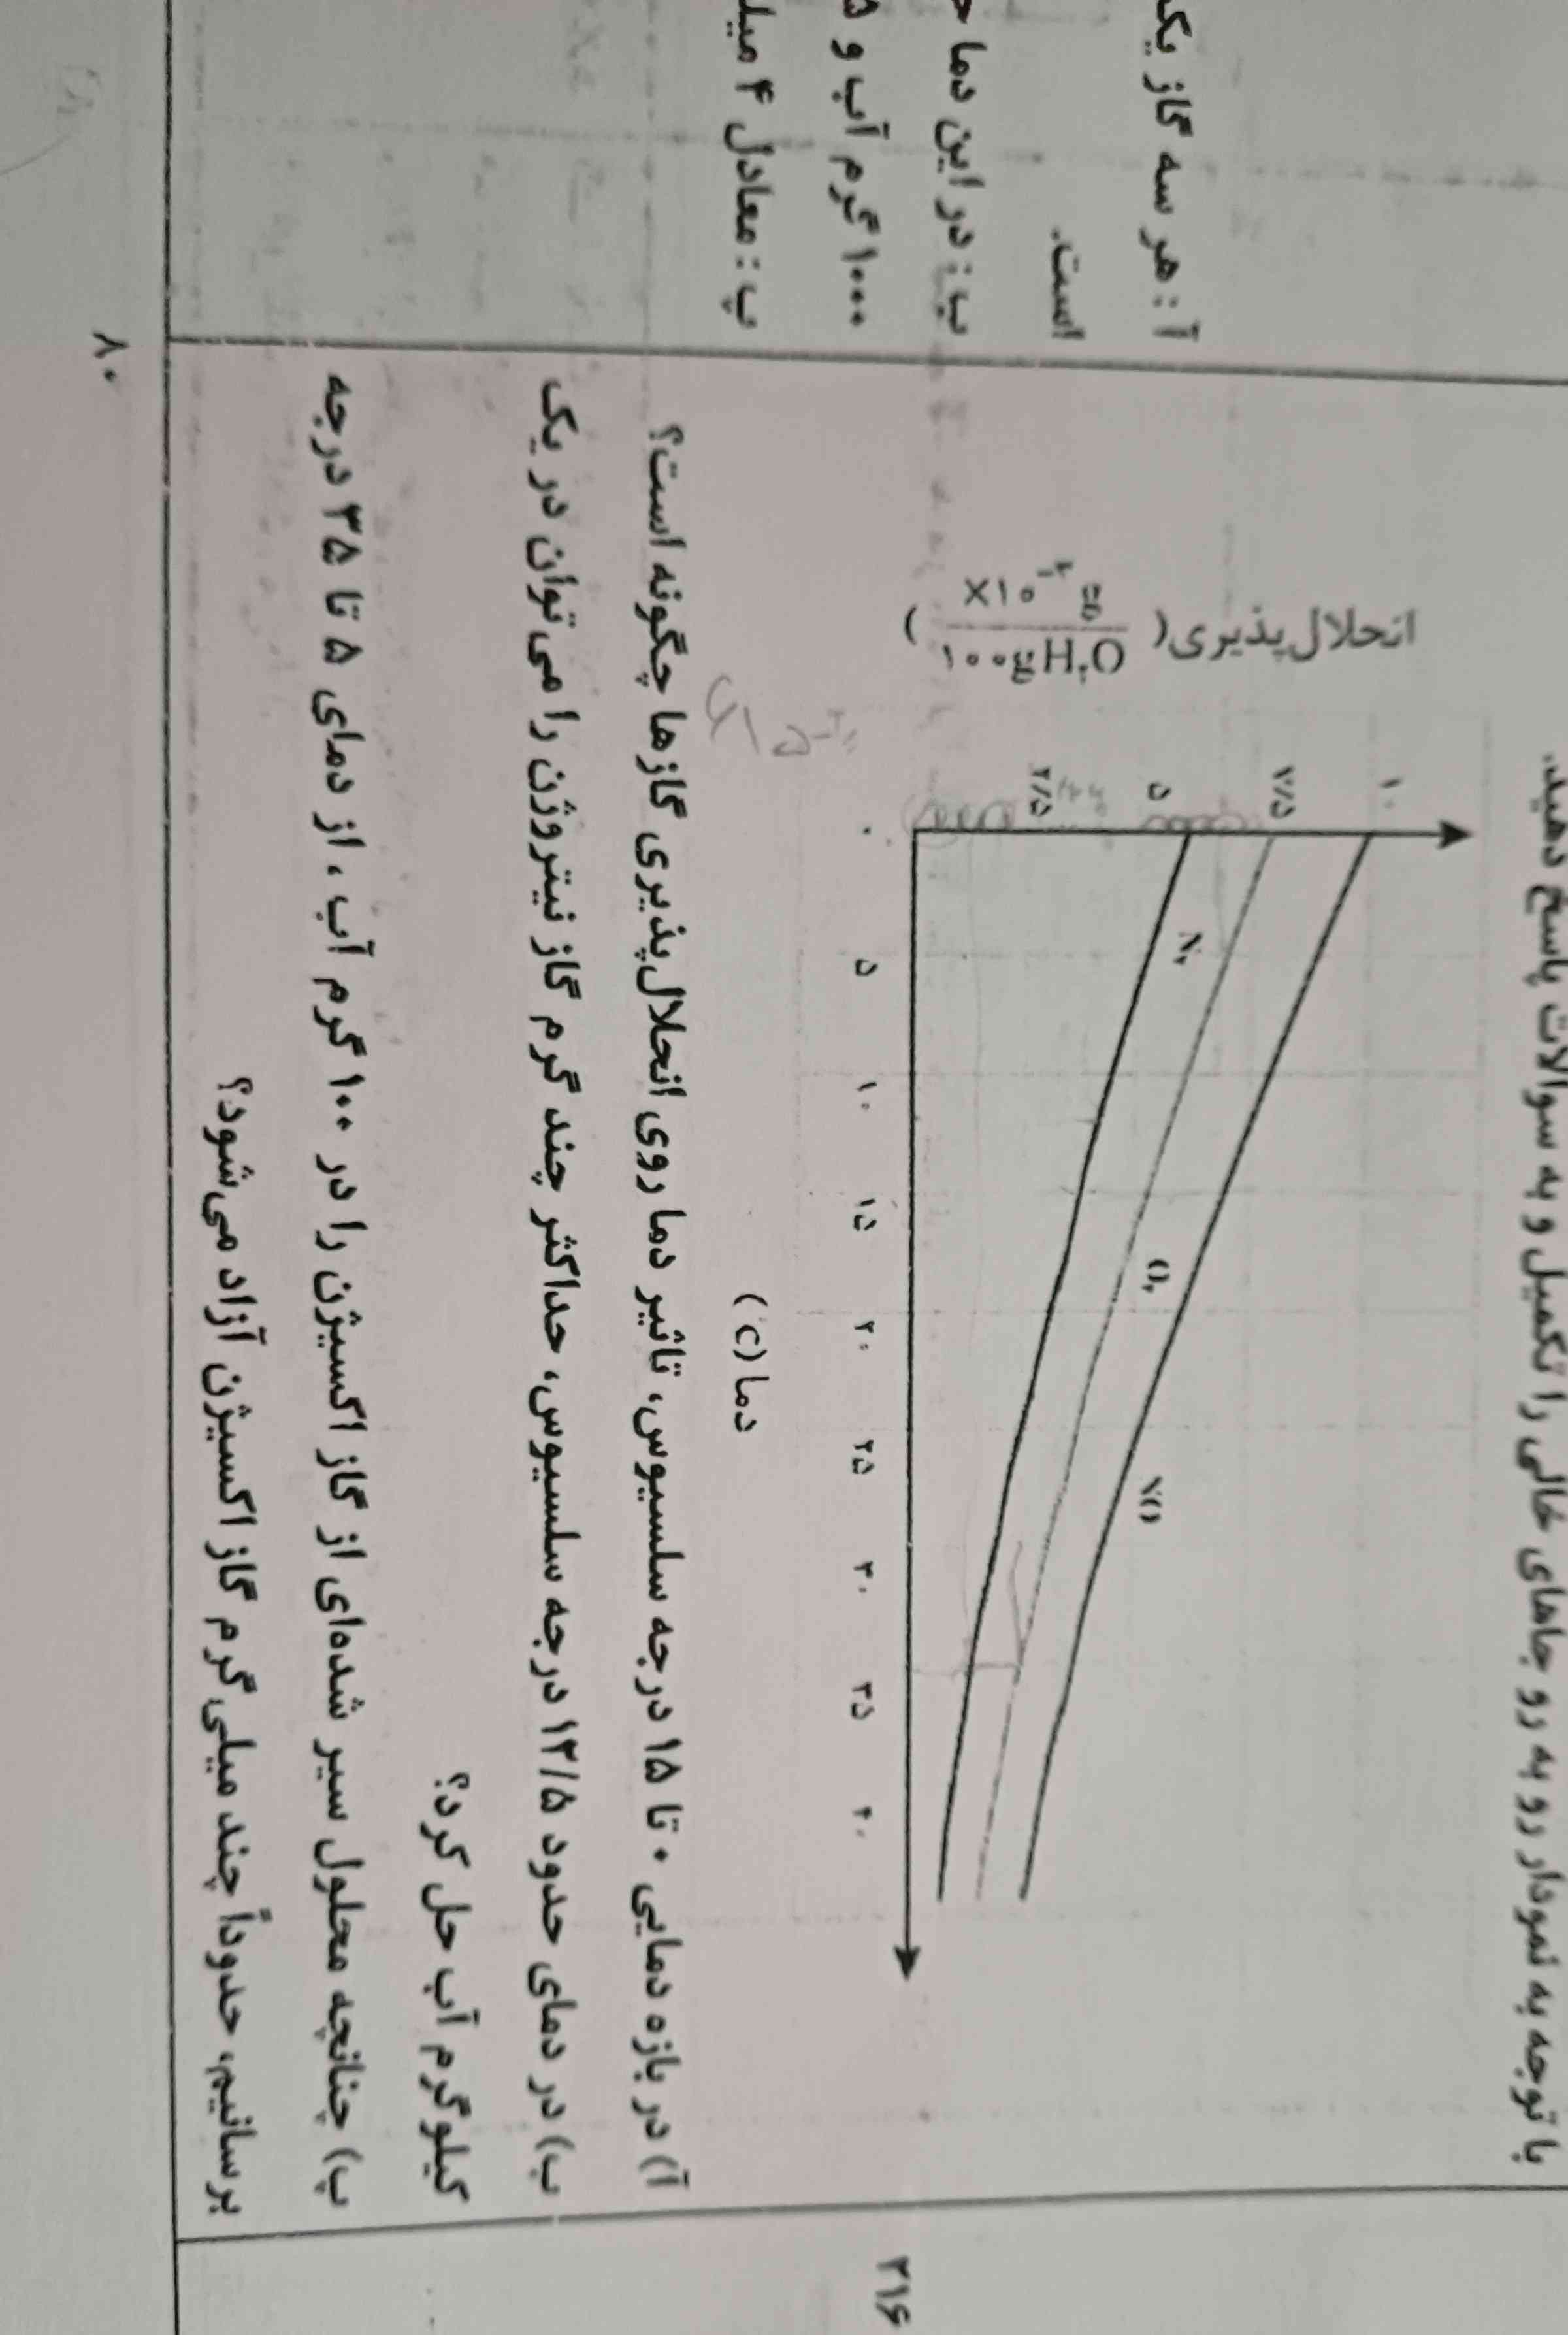 با توجه به نمودار رو به رو جاهای خالی را تکمیل و به سوالات پاسخ دهید.
۲۱۶
انحلال‌پذیری ( ×۱۰⁻۳ g / ۱۰۰gH₂O )
۱۰
۷/۵
۵
۲/۵
N₂
O₂
NO
۰ ۵ ۱۰ ۱۵ ۲۰ ۲۵ ۳۰ ۳۵ ۴۰
دما (C)
آ) در بازه دمایی ۰ تا ۱۵ درجه سلسیوس، تاثیر دما روی انحلال‌پذیری گازها چگونه است؟
ب) در دمای حدود ۱۲/۵ درجه سلسیوس، حداکثر چند گرم گاز نیتروژن را می‌توان در یک
کیلوگرم آب حل کرد؟
پ) چنانچه محلول سیر شده‌ای از گاز اکسیژن را در ۱۰۰ گرم آب، از دمای ۵ تا ۳۵ درجه
برسانیم، حدوداً چند میلی گرم گاز اکسیژن آزاد می‌شود؟
آ: هر سه گاز یک
است.
ب: در این دما
۱۰۰۰ گرم آب و ۵
پ: معادل ۴
۸۰